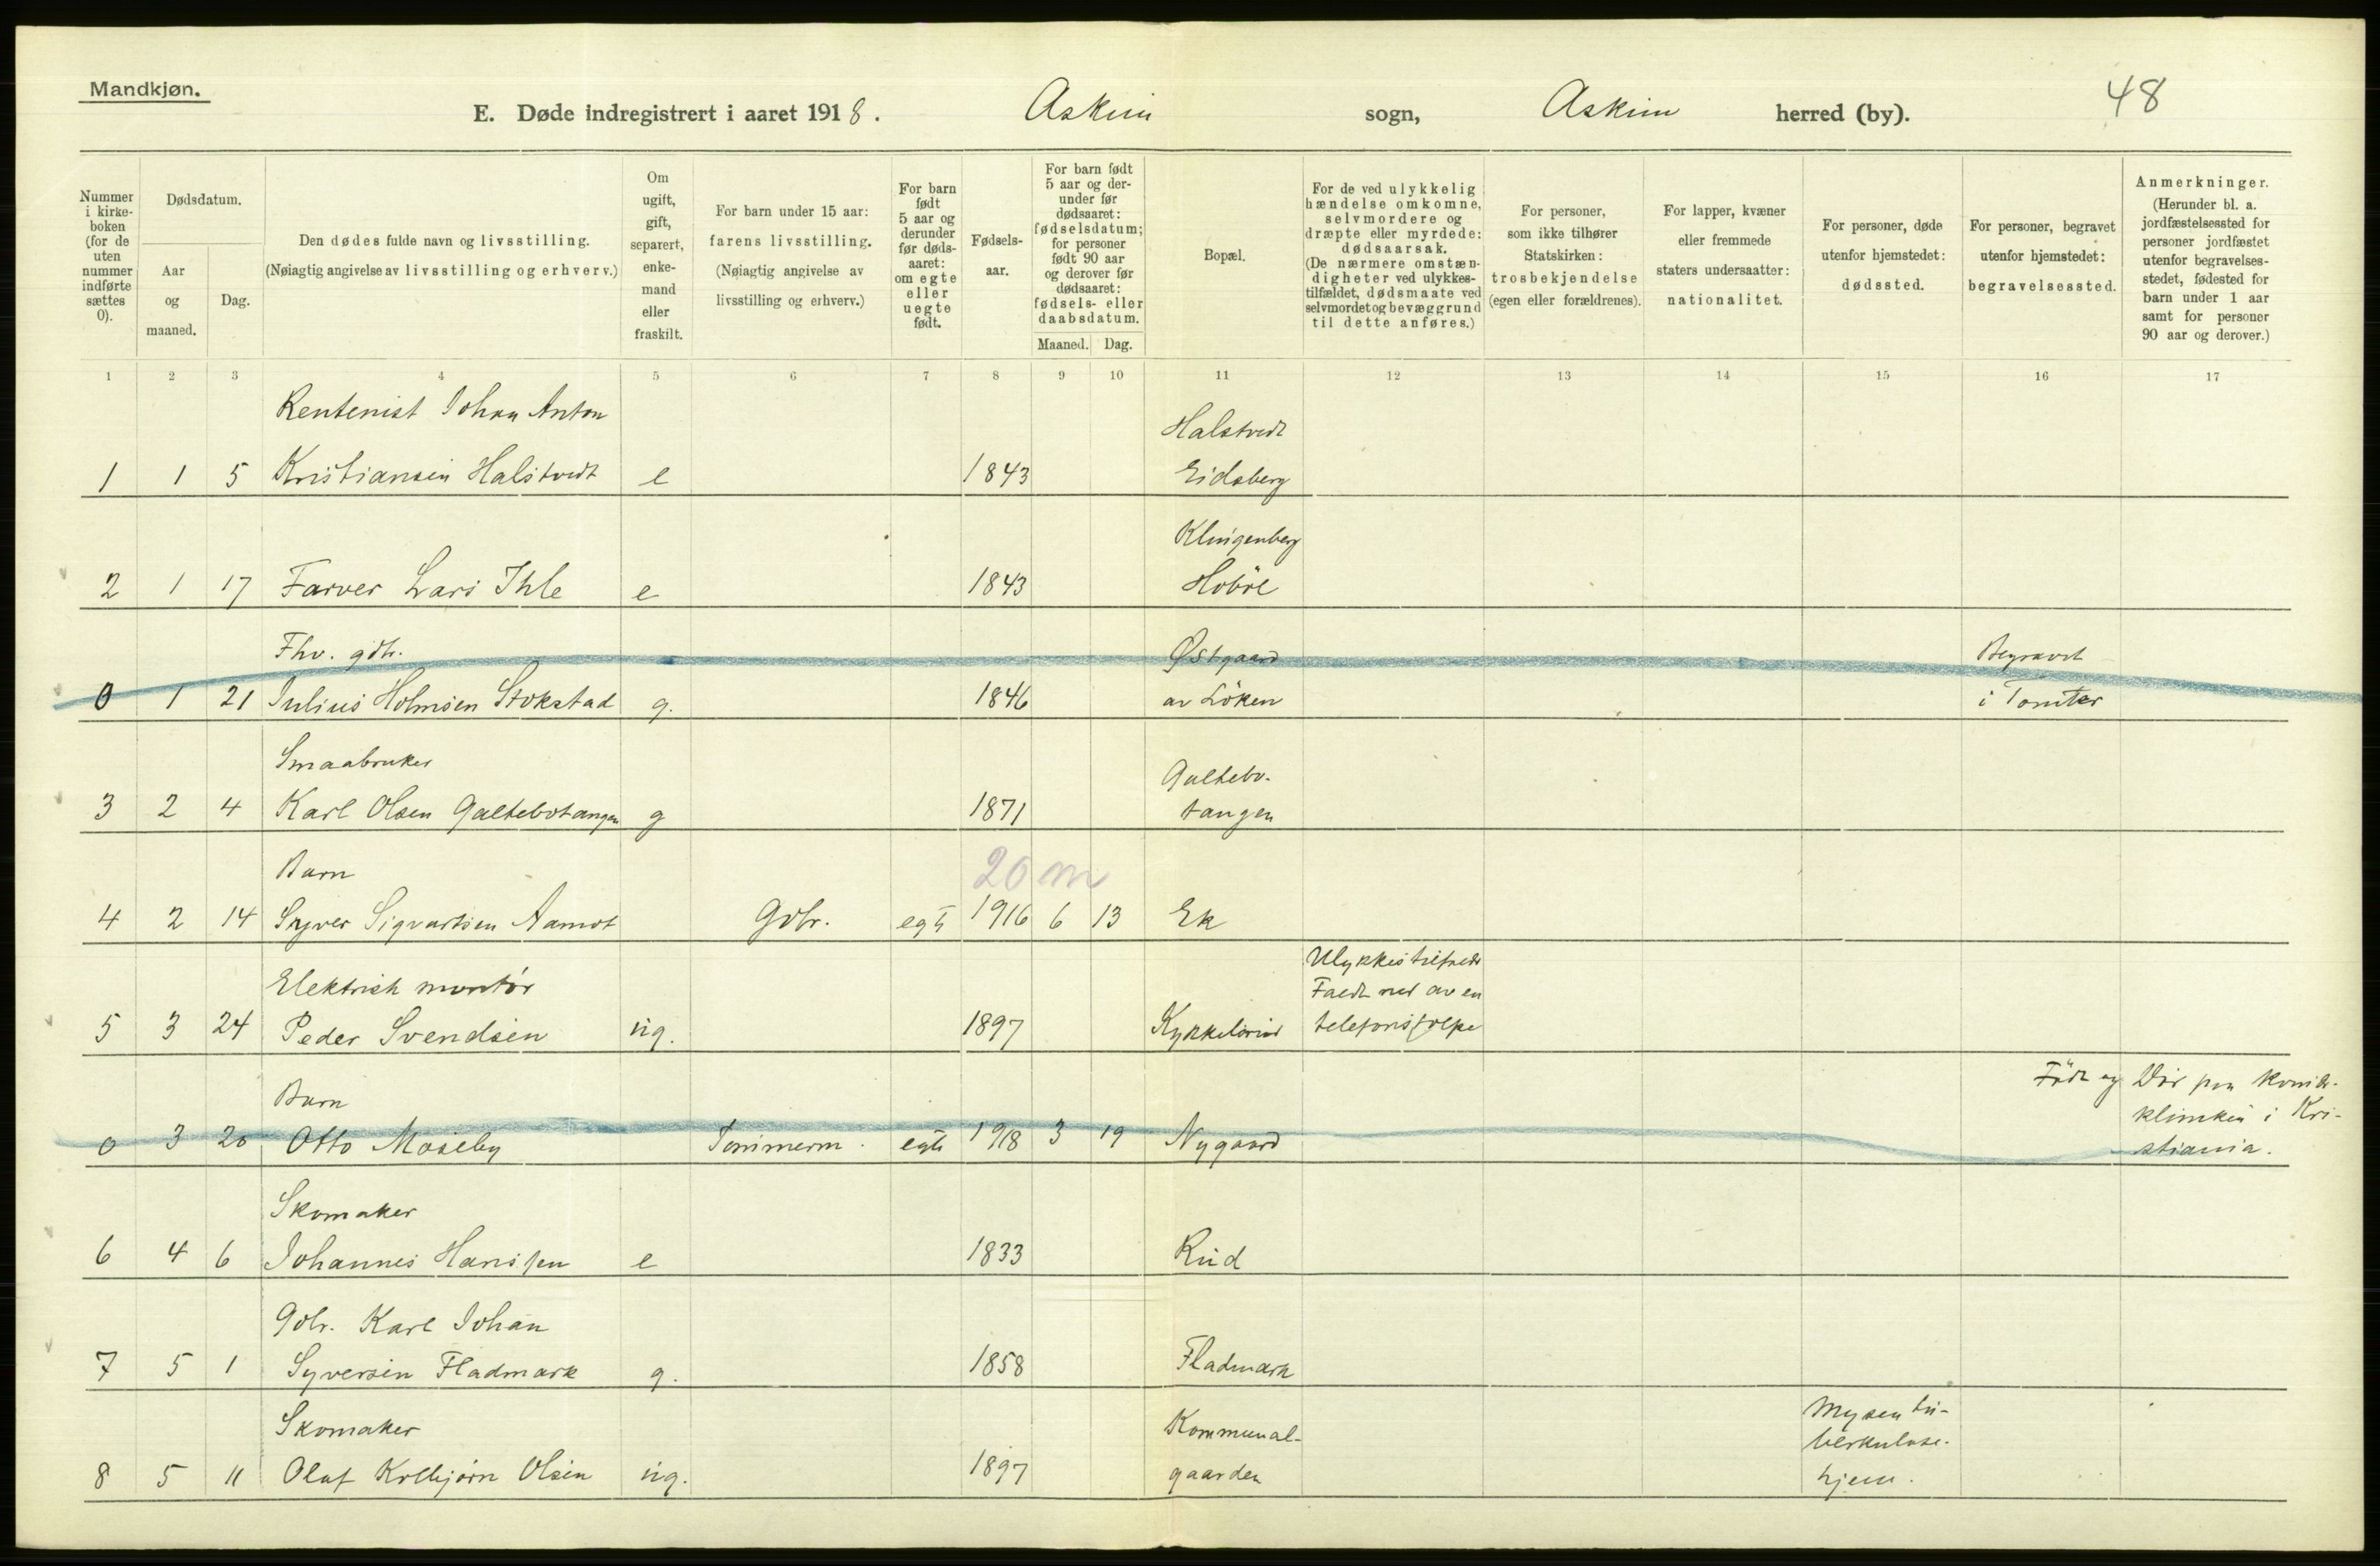 Mandkjøn.
E. Døde indregistrert i aaret 1918. Askim sogn, Askim herred (by). 48
Nummer i kirke- boken (for de uten nummer indførte sættes 0).
Dødsdatum.
Aar og maaned.
Dag.
Den dødes fulde navn og livsstilling.
(Nøiagtig angivelse av livsstilling og erhverv.)
Om ugift, gift, separert, enke- mand eller fraskilt.
For barn under 15 aar:
farens livsstilling.
(Nøiagtig angivelse av
livsstilling og erhverv.)
For barn født 5 aar og derunder før døds- aaret: om egte eller uegte født.
Fødsels- aar.
For barn født 5 aar og der- under før dødsaaret: fødselsdatum; for personer født 90 aar og derover før dødsaaret: fødsels- eller daabsdatum.
Maaned. Dag.
Bopæl.
For de ved ulykkelig hændelse omkomne, selvmordere og dræpte eller myrdede: dødsaarsak. (De nærmere omstæn- digheter ved ulykkes- tilfældet, dødsmaate ved selvmordet og bevæggrund til dette anføres.)
For personer,
som ikke tilhører
Statskirken:
trosbekjendelse
(egen eller forældrenes).
For lapper, kvæner
eller fremmede
staters undersaatter:
nationalitet.
For personer, døde
utenfor hjemstedet:
dødssted.
For personer, begravet
utenfor hjemstedet:
begravelsessted.
Anmerkninger.
(Herunder bl. a.
jordfæstelsessted for
personer jordfæstet
utenfor begravelses-
stedet, fødested for
barn under 1 aar
samt for personer
90 aar og derover.)
1 2 3 4 5 6 7 8 9 10 11 12 13 14 15 16 17
Rentenist Johan Anton Halstvedt
1 1 5 Kristiansen Halstvedt e 1843 Eidsberg
Klingenberg
2 1 17 Farver Lars Ihle e 1843 Hobøl
Fhv. gdbr. Østgaard Begravet
0 1 21 Julius Holmsen Stokstad g. 1846 av Löken i Tomter
Smaabruker Galtebo-
3 2 4 Karl Olsen Galtebotangen g 1871 tangen
Barn 20 m
4 2 14 Syver Sigvartsen Aamot Gdbr. egte 1916 6 13 Ek
Elektrisk montør Ulykkestilfælde
Faldt ned av en
5 3 24 Peder Svendsen ug. 1897 Kykkelsrud telefonstolpe
Barn Født og Dør paa kvinde-
klinkken i Kri-
0 3 20 Otto Moseby Tømmerm. egte 1918 3 19 Nygaard stiania.
Skomaker
6 4 6 Johannes Hanssen e 1833 Rud
Gdbr. Karl Johan
7 5 1 Syversen Fladmark g. 1858 Fladmark
Skomaker Kommunal- Mysen tu-
berkulose-
8 5 11 Olaf Kolbjørn Olsen ug. 1897 gaarden hjem.